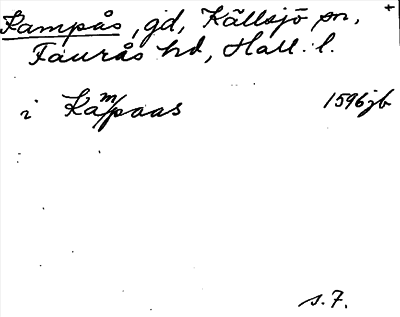 Kampås, gd, Källsjö sn, +
Faurås hd, Hall. l.
i Kam/paas 1596 jb
s. 7.